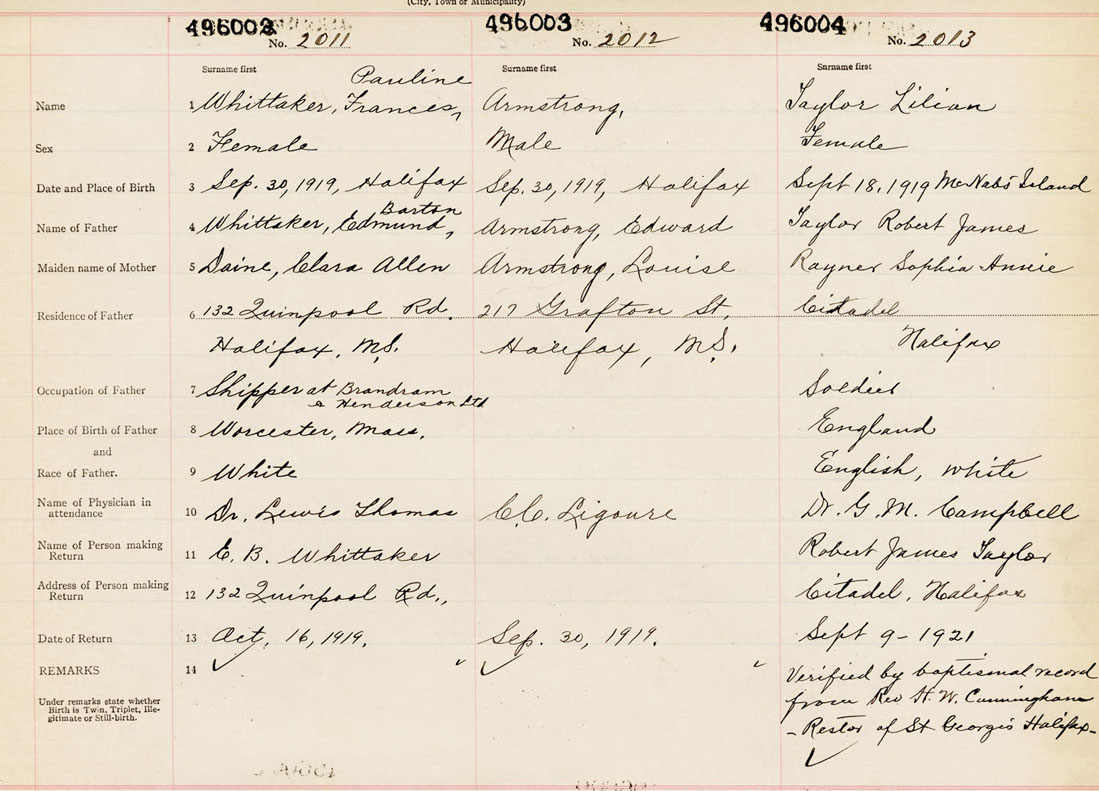 (City, Town or Municipality)
496002 496003 496004
No. 2011 No. 2012 No. 2013
Surname first Surname first Surname first
Pauline
Name 1 Whittaker, Frances, Armstrong, Taylor Lilian
Sex 2 Female Male Female
Date and Place of Birth 3 Sep. 30, 1919, Halifax Sep. 30, 1919, Halifax Sept 18, 1919 McNab's Island
Barton
Name of Father 4 Whittaker, Edmund, Armstrong, Edward Taylor Robert James
Maiden name of Mother 5 Daine, Clara Allen Armstrong, Louise Rayner Sophia Annie
Residence of Father 6 132 Quinpool Rd. 217 Grafton St, Citadel
Halifax, N.S. Halifax, N.S. Halifax
Occupation of Father 7 Shipper at Brandram Soldier
& Henderson Ltd
Place of Birth of Father 8 Worcester, Mass. England
and
Race of Father. 9 White English, white
Name of Physician in
attendance 10 Dr. Lewis Thomas C.C. Ligoure Dr. G. M. Campbell
Name of Person making
Return 11 E. B. Whittaker Robert James Taylor
Address of Person making
Return 12 132 Quinpool Rd., Citadel, Halifax
Date of Return 13 Oct. 16, 1919. Sep. 30, 1919. Sept 9 - 1921
REMARKS 14 Verified by baptismal record
Under remarks state whether
Birth is Twin, Triplet, Ille-
gitimate or Still-birth.
from Rev H. W. Cunningham
- Rector of St George's Halifax -